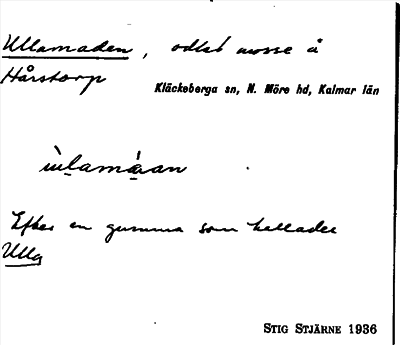 Ullamaden, odlat mosse å
Hårstorp
Kläckeberga sn, N. Möre hd, Kalmar län
Efter en gumma som hettade
Ulla
STIG STJÄRNE 1936